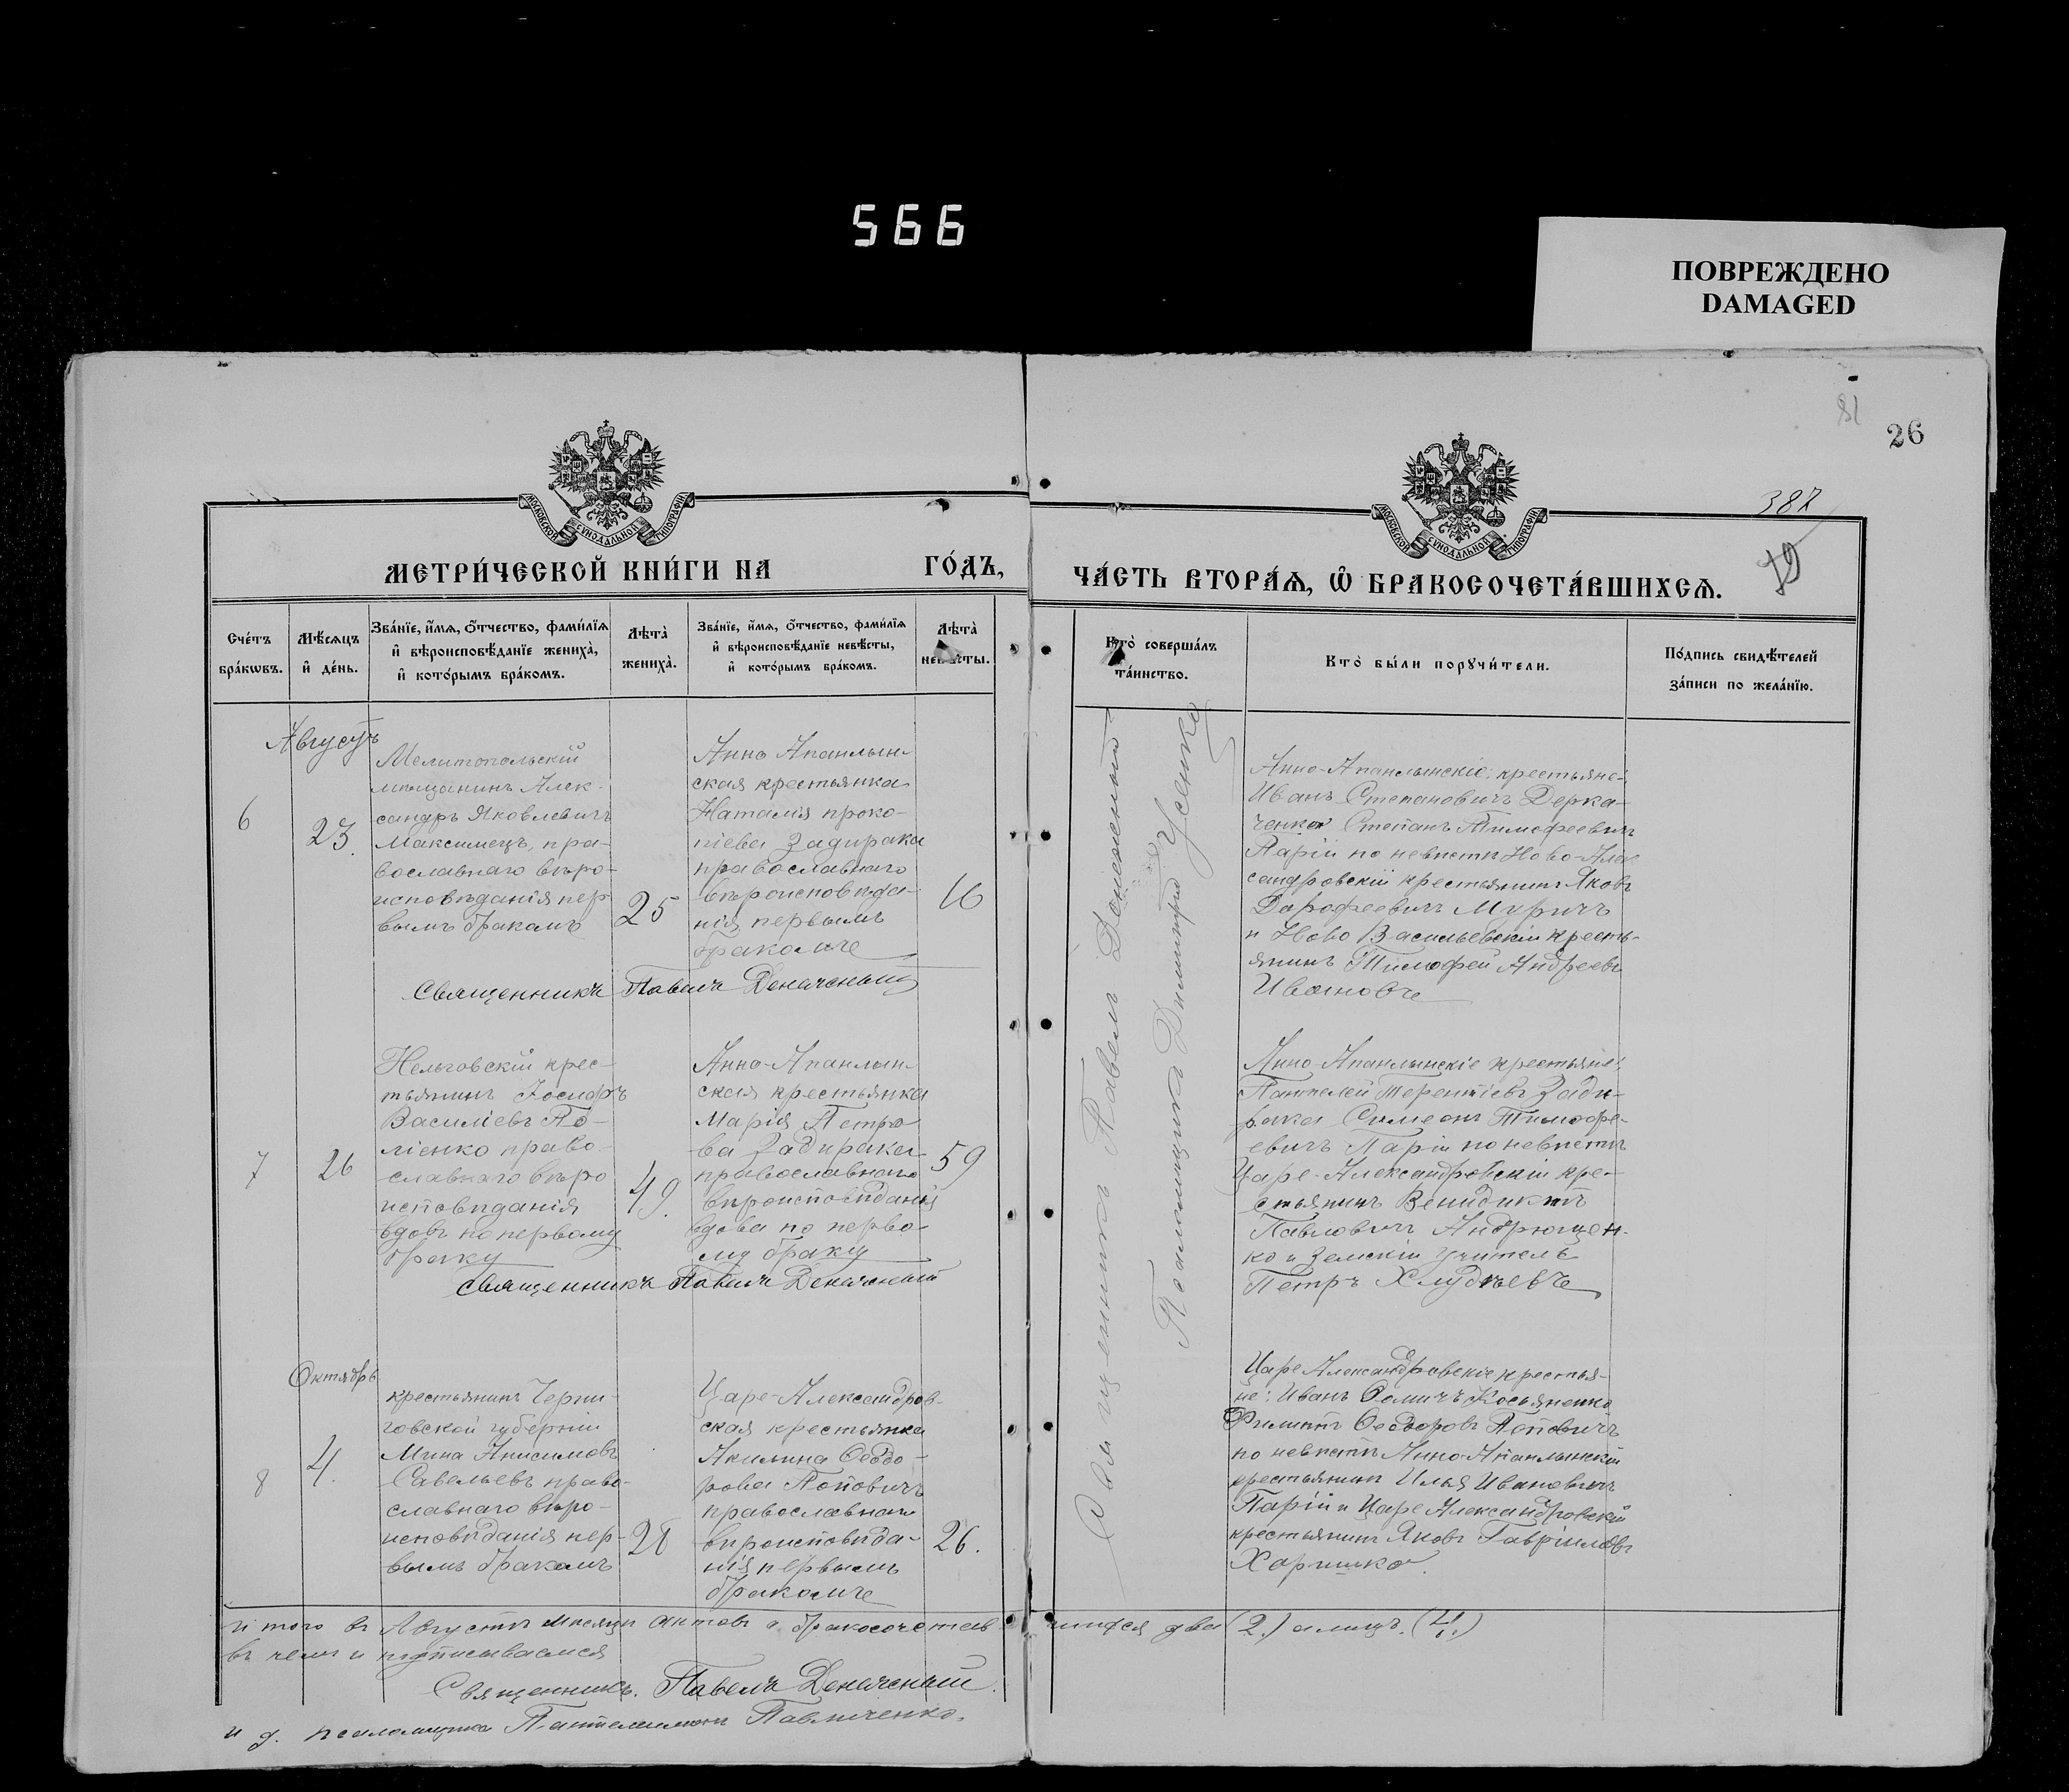 566
ПОВРЕЖДЕНО
DAMAGED
81
26
387
79
МОСКОВСКОЙ СѴНОДАЛЬНОЙ ТИПОГРАФІИ
МОСКОВСКОЙ СѴНОДАЛЬНОЙ ТИПОГРАФІИ
МЕТРИ́ЧЕСКОЙ КНИ́ГИ НА ГО́ДЪ,
ЧА́СТЬ ВТОРА́Ѧ, Ѽ БРАКОСОЧЕТА́ВШИХСѦ.
Сче́тъ бра́кѡвъ.
Мѣ́сѧцъ и҆ де́нь.
Зва́нїе, и҆́мѧ, ѻ҆́тчество, фами́лїѧ
и҆ вѣроисповѣ́данїе жениха̀,
и҆ кото́рымъ бра́комъ.
Лѣ́та̀ жениха̀.
Зва́нїе, и҆́мѧ, ѻ҆́тчество, фами́лїѧ
и҆ вѣроисповѣ́данїе невѣ́сты,
и҆ кото́рымъ бра́комъ.
Лѣ́та̀ невѣ́сты.
Кто̀ соверша́лъ
та́инство.
Кто̀ бы́ли порꙋчи́тели.
По́дпись свидѣ́телей
за́писи по жела́нїю.
Августъ
6
23.
Мелитопольскій
мѣщанинъ Алек-
сандръ Яковлевичъ
Максимецъ, пра-
вославнаго вѣро-
исповѣданія пер-
вымъ бракомъ
25
Анно Апанлын-
ская крестьянка
Наталія Проко-
піева Задирака
православнаго
вѣроисповѣда-
нія первымъ
бракомъ
16
Священникъ Павелъ
Анно-Апанлынскіе: крестьяне:
Иванъ Степановичъ Дерка-
ченко Степанъ Тимофеевичъ
Парій по невѣстѣ Ново-Алек
сандровскій крестьянинъ Яковъ
Дарофеевичъ Муричъ
и Ново Васильевскій кресть-
янинъ Тимофей Андреевъ
Ивановъ
Священникъ Павелъ
Псаломщикъ Димитрій Усенко
7
26
Нельговскій крес-
тьянинъ Іосифъ
Василіевъ По-
ліенко право-
славнаго вѣро
исповѣданія
вдовъ по первому
браку
49.
Анно-Апанлын-
ская крестьянка
Марія Петро-
ва Задирака
православнаго
вѣроисповѣданія
вдова по перво-
му браку
59
Священникъ Павелъ
Анно-Апанлынскіе крестьяне:
Пантелей Терентіевъ Зади-
рака Симеонъ Тимофе-
евичъ Парій по невѣстѣ
Царе-Александровскій кре-
стьянинъ Венидиктъ
Павловичъ Андрющен-
ко и Земскій учитель
Петръ Хлудѣевъ
Октябрь
8
4.
крестьянинъ Черни-
говской губерніи
Мина Анисимовъ
Савельевъ право-
славнаго вѣро-
исповѣданія пер-
вымъ бракомъ
28
Царе-Александров-
ская крестьянка
Акилина Ѳеодо-
рова Поповичъ
православнаго
вѣроисповѣда-
нія первымъ
бракомъ
26.
Царе Александровскіе крестья-
не: Иванъ Ѳомичъ Косьяненко
Филиппъ Ѳеодоровъ Поповичъ
по невѣстѣ Анно-Апанлынскій
крестьянинъ Илья Ивановичъ
Парій и Царе Александровскій
крестьянинъ Яковъ Гавріиловъ
Харишко.
Итого въ Августѣ мѣсяцѣ актовъ о бракосочетав шихся два (2.) а лицъ. (4.)
въ чемъ и подписываемся
Священникъ. Павелъ
и д. псаломщика Пантелимонъ Павличенко.